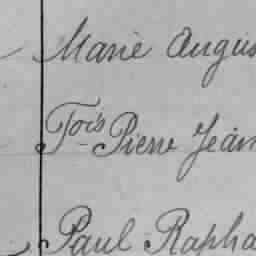 Marie Augus
Fois Pierre Jean
Paul Rapha